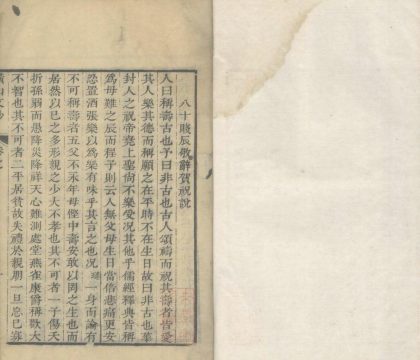 八十賤辰敬辭賀祝說
人曰稱壽古也予曰非古也古人頌禱而祝其壽者皆愛
其人樂其德而稱願之在平時不在生日故曰非古也華
封人之祝帝堯上聖尚不樂受况其他乎儒經釋典皆稱
為母難之辰而程子則云人無父母生日當倍悲痛更安
忍置酒張樂以為樂有味乎其言之也况
一身而論有
不可稱壽者五父不永年母慳中壽安敢以罔之生也而
居然以已之多形親之少大不孝也其不可者一子傷夭
折孫弱而愚降災降祥天心難測處堂燕雀康爵稱歡大
不智也其不可者二平居貧故失禮於親朋一旦忽已